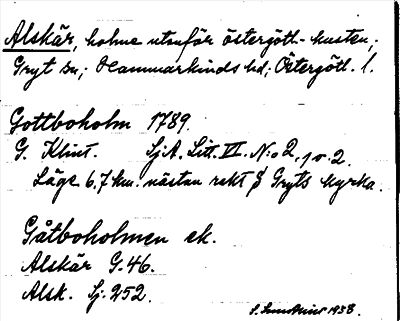 Alskär, holme utanför östergötl.- kusten,
Gryt sn; Hammarkinds hd; Östergötl. l.
Gottboholm 1789.
G. Klint. SjA. Litt. VI. N:o 2, 1 o. 2.
Läge 6,7 km. nästan rakt Gryts kyrka.
Gåtboholmen ek.
Alskär G. 46.
Alsk. Sj. 252.
S. 1938.